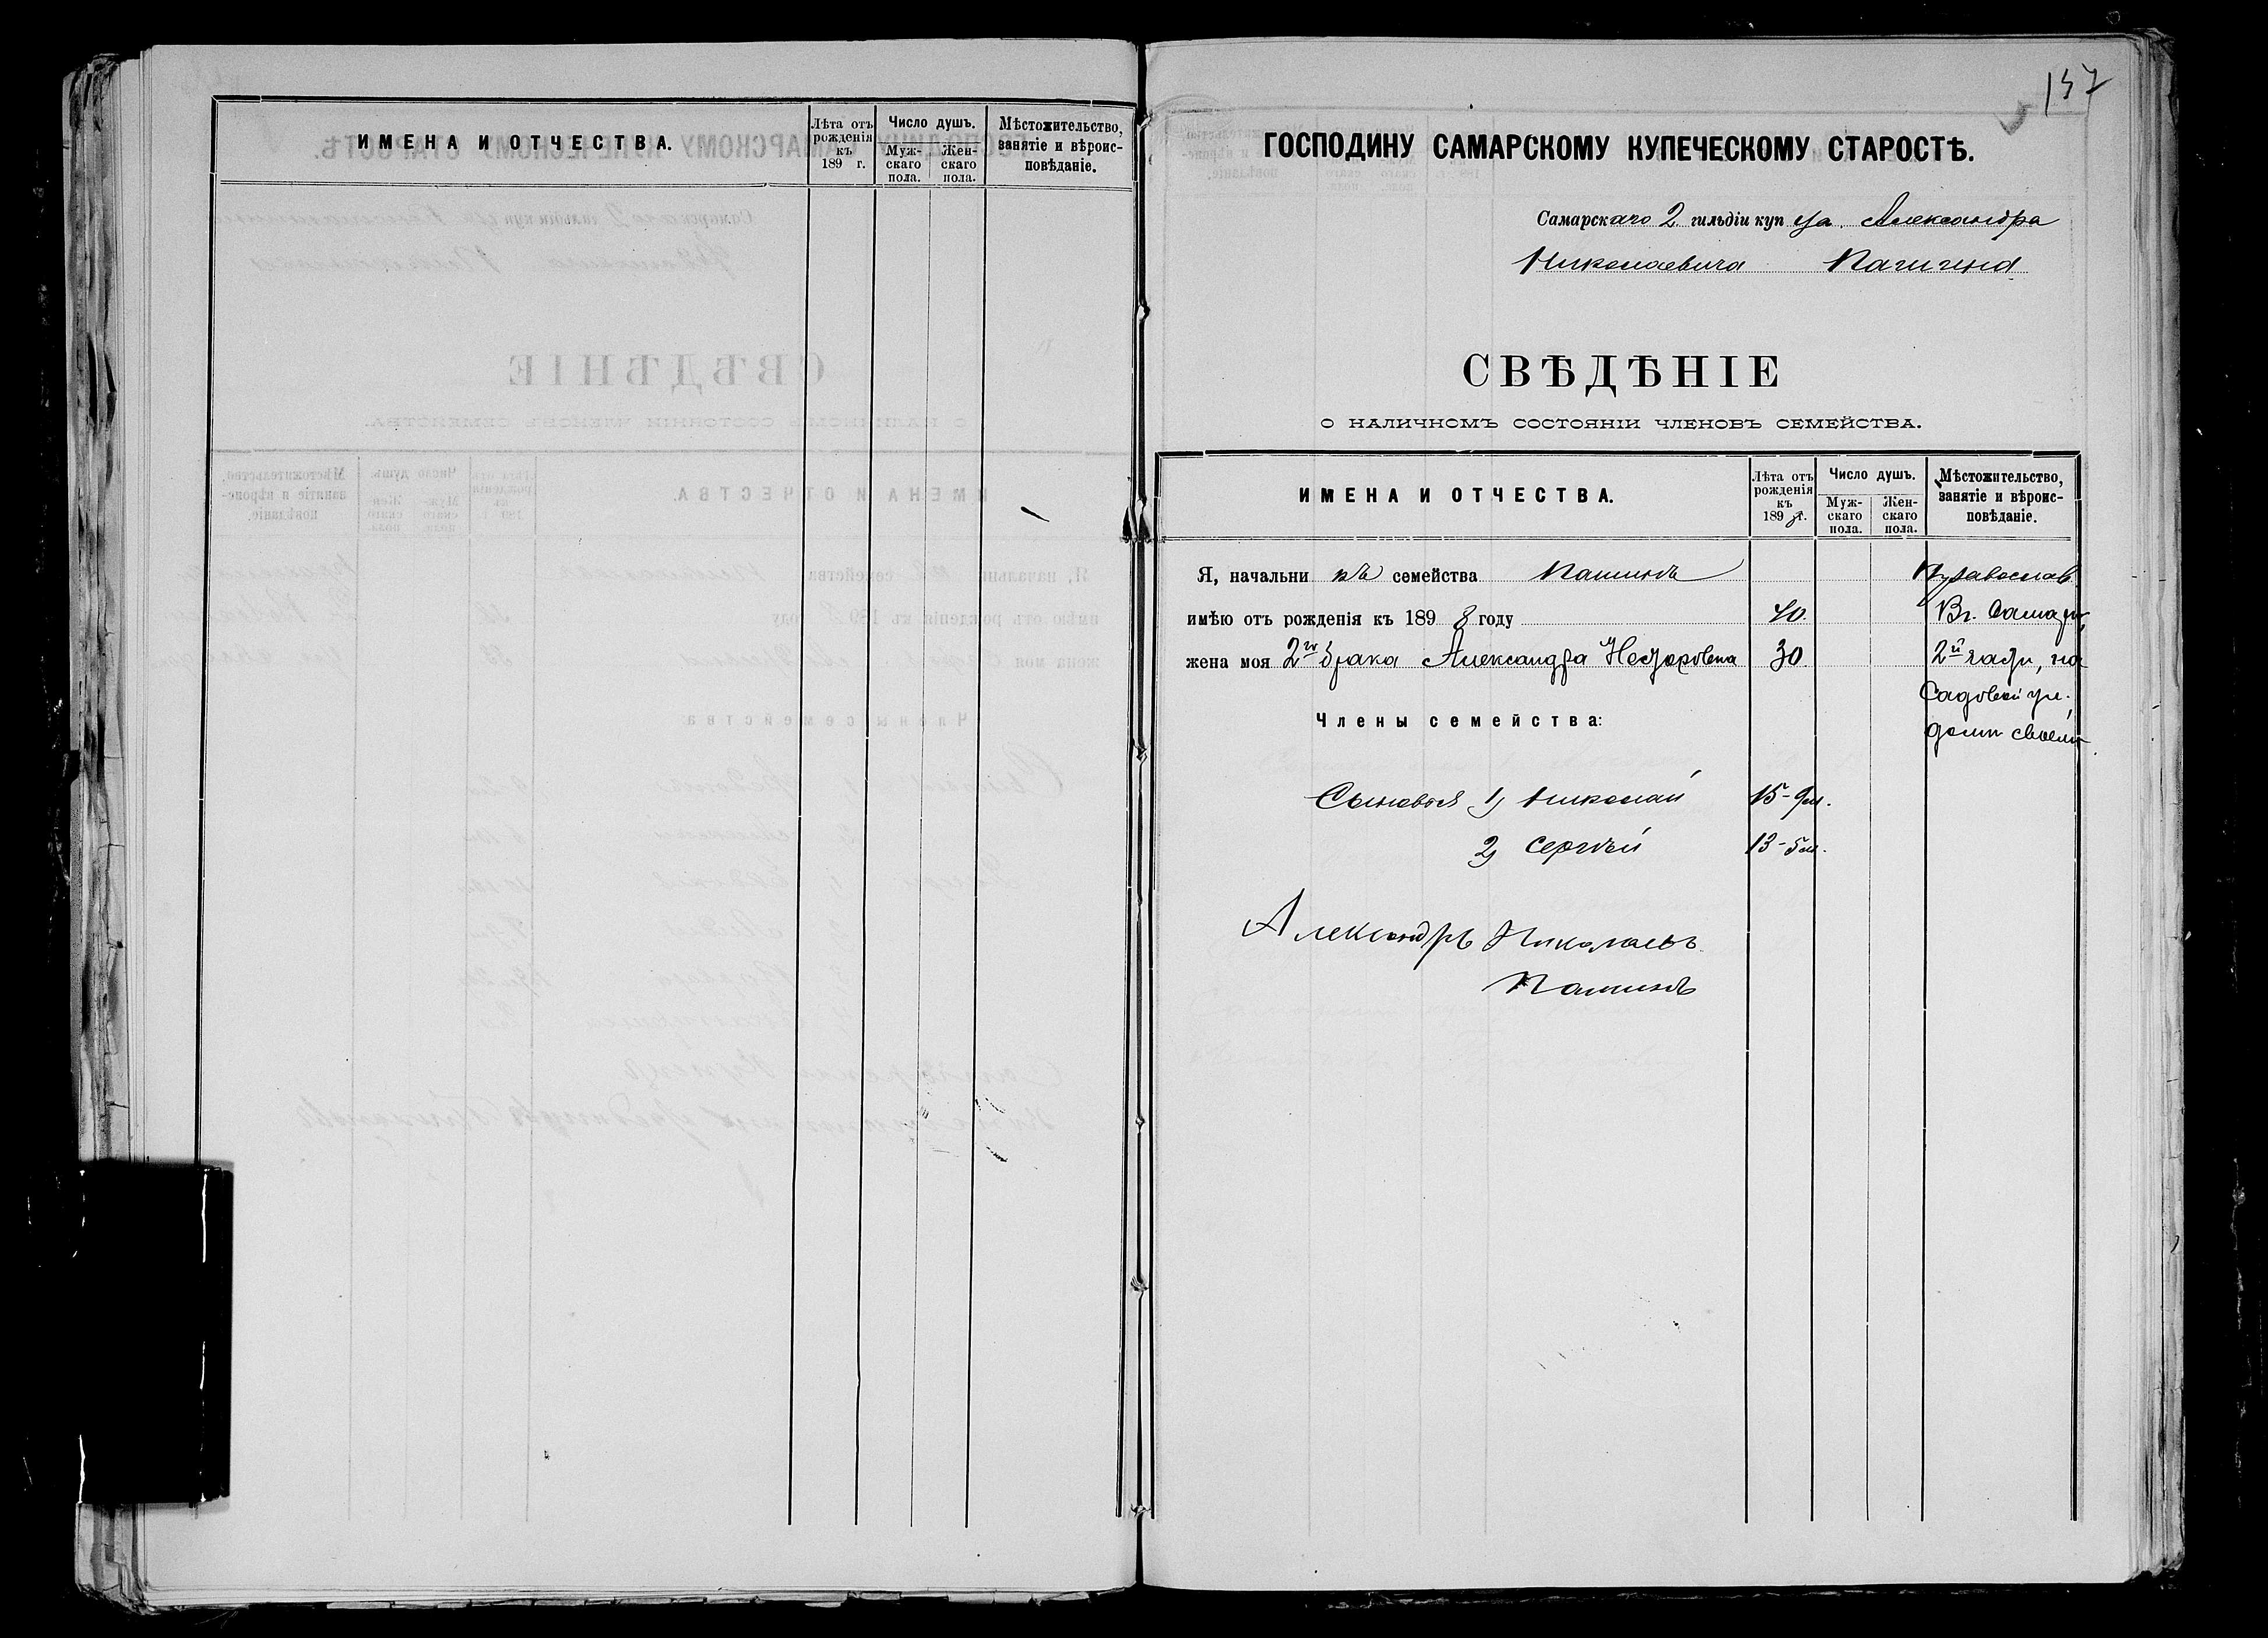 ИМЕНА И ОТЧЕСТВА.
Лѣта отъ рожденія къ 189 г.
Число душъ.
Муж-скаго пола.
Жен-скаго пола.
Мѣстожительство, занятіе и вѣроис-повѣданіе.
137
ГОСПОДИНУ САМАРСКОМУ КУПЕЧЕСКОМУ СТАРОСТѢ.
Самарскаго 2 гильдіи купца Александра
Николаевича
СВѢДѢНІЕ
О НАЛИЧНОМЪ СОСТОЯНІИ ЧЛЕНОВЪ СЕМЕЙСТВА.
ИМЕНА И ОТЧЕСТВА.
Лѣта отъ рожденія къ 1898 г.
Число душъ.
Муж-скаго пола.
Жен-скаго пола.
Мѣстожительство, занятіе и вѣроис-повѣданіе.
Я, начальникъ семейства Пашинъ Православ.
имѣю отъ рожденія къ 1898 году 40. Въ г. Самарѣ,
жена моя 2го брака Александра 30 2й части, на
Садовой ул.
Члены семейства:
домъ
Сыновья 1, Николай 15-9м.
2, Сергѣй 13-5м.
Александръ Николаевъ
Пашинъ